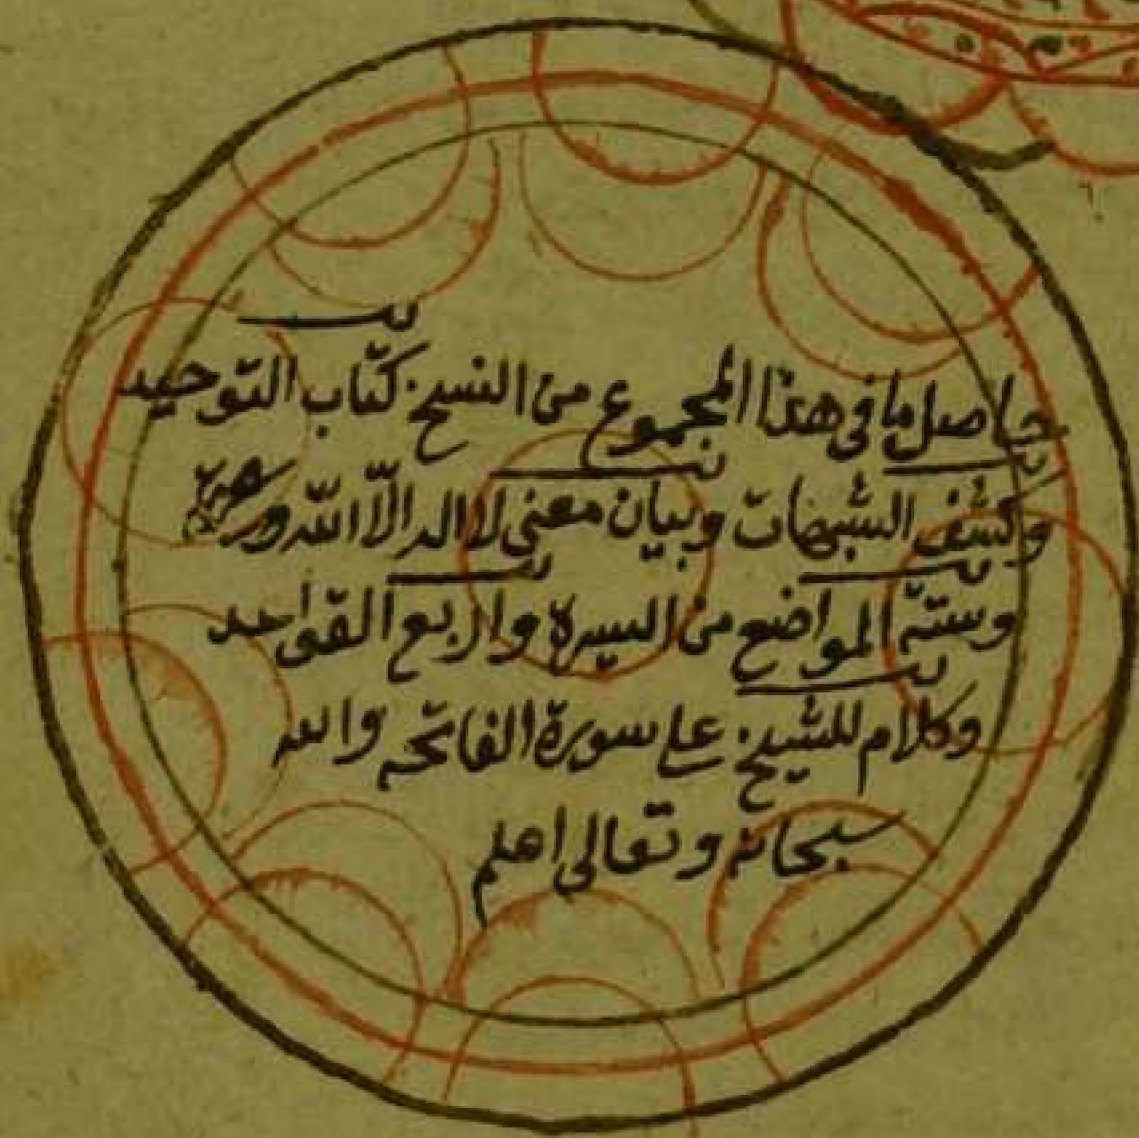 حاصل ما في هذا المجموع من النسخ كتاب التوحيد
وكشف الشبهات وبيان معنى لا اله الا الله
وستة المواضع من السيرة واربع القواعد
وكلام للشيخ على سورة الفاتحه والله
سبحانه وتعالى اعلم